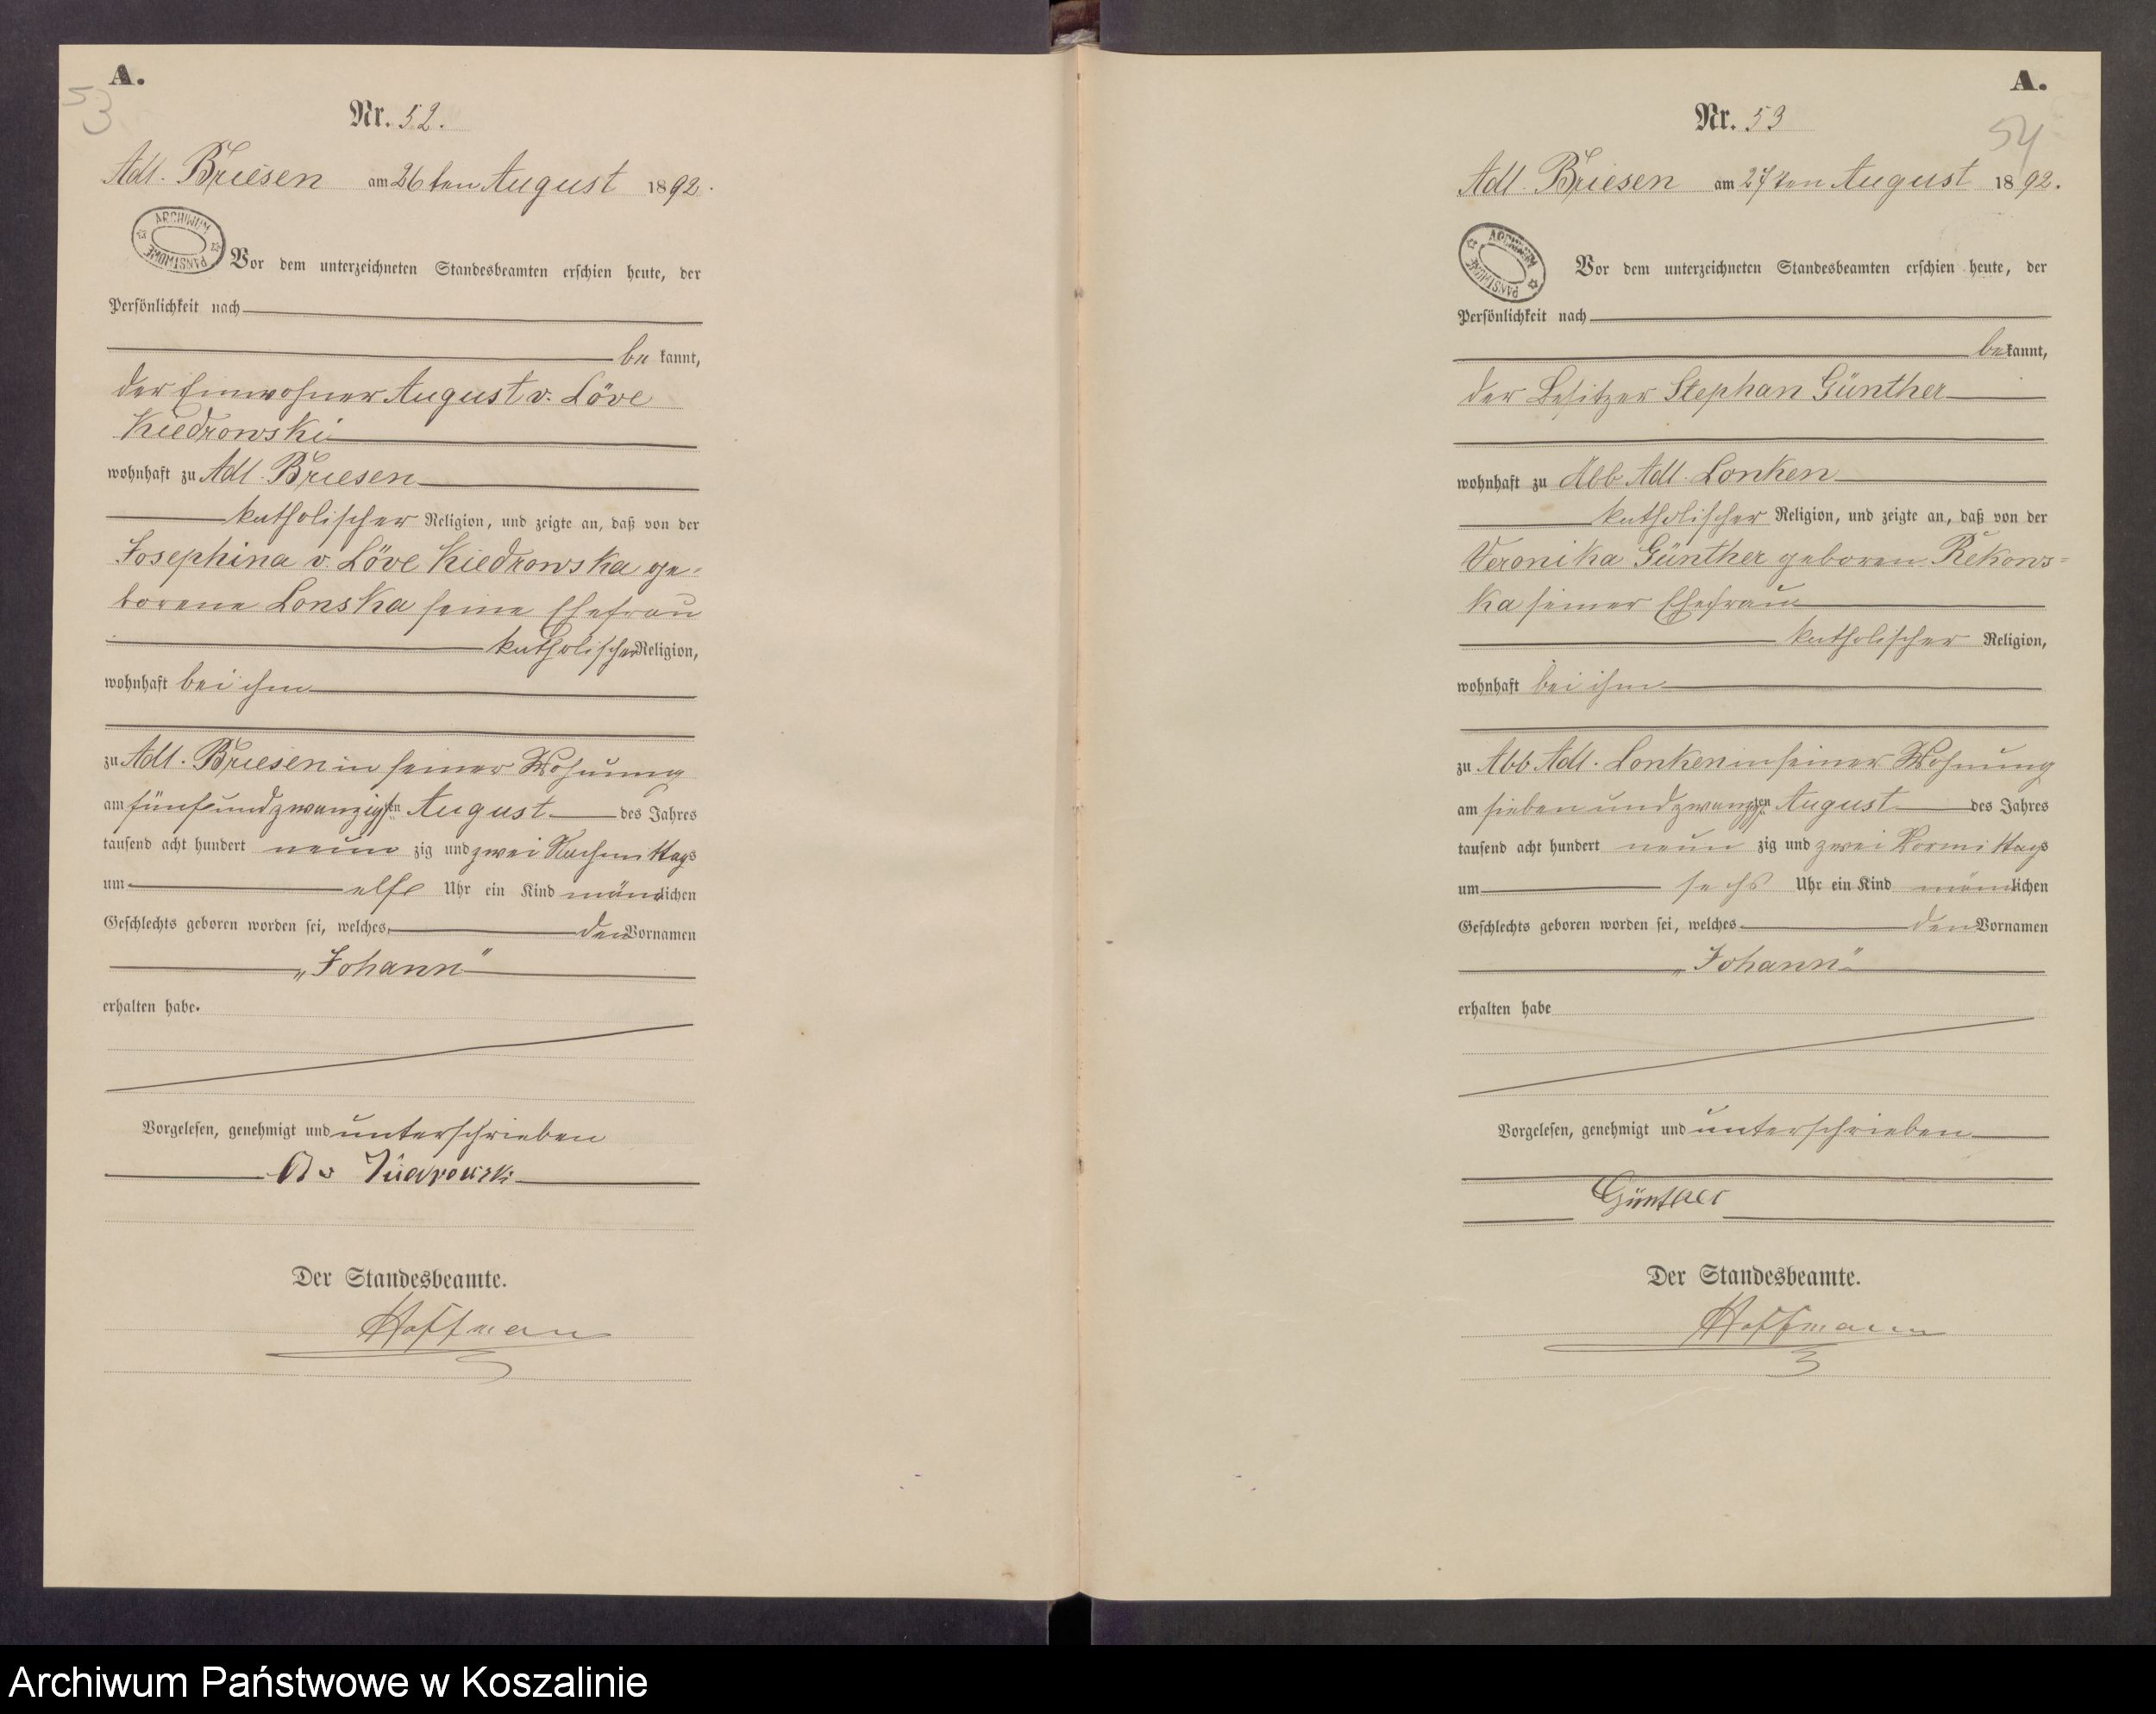 A.
53
Nr. 52.
Adl. Briesen am 26ten August 1892.
ARCHIWUM PAŃSTWOWE
Vor dem unterzeichneten Standesbeamten erschien heute, der
Persönlichkeit nach
be kannt,
der Einwohner August v. Löve
Kiedrowski
wohnhaft zu Adl. Briesen
katholischer Religion, und zeigte an, daß von der
Josephina v. Löve Kiedrowska ge-
borene Lonska seine Ehefrau
katholischer Religion,
wohnhaft bei ihm
zu Adl. Briesen in seiner Wohnung
am fünfundzwanzigsten August des Jahres
tausend acht hundert neun zig und zwei Nachmittags
um elf Uhr ein Kind männlichen
Geschlechts geboren worden sei, welches den Vornamen
„Johann"
erhalten habe.
Vorgelesen, genehmigt und unterschrieben
A v Kiedrowski
Der Standesbeamte.
Hoffmann
A.
54
Nr. 53
Adl. Briesen am 27ten August 1892.
ARCHIWUM PAŃSTWOWE
Vor dem unterzeichneten Standesbeamten erschien heute, der
Persönlichkeit nach
bekannt,
der Besitzer Stephan Günther
wohnhaft zu Abb Adl. Lonken
katholischer Religion, und zeigte an, daß von der
Veronika Günther geboren Rekows-
ka seiner Ehefrau
katholischer Religion,
wohnhaft bei ihm
zu Abb Adl. Lonken in seiner Wohnung
am siebenundzwanzigsten August des Jahres
tausend acht hundert neun zig und zwei Vormittags
um sechs Uhr ein Kind männlichen
Geschlechts geboren worden sei, welches den Vornamen
„Johann"
erhalten habe
Vorgelesen, genehmigt und unterschrieben
Günther
Der Standesbeamte.
Hoffmann
Archiwum Państwowe w Koszalinie